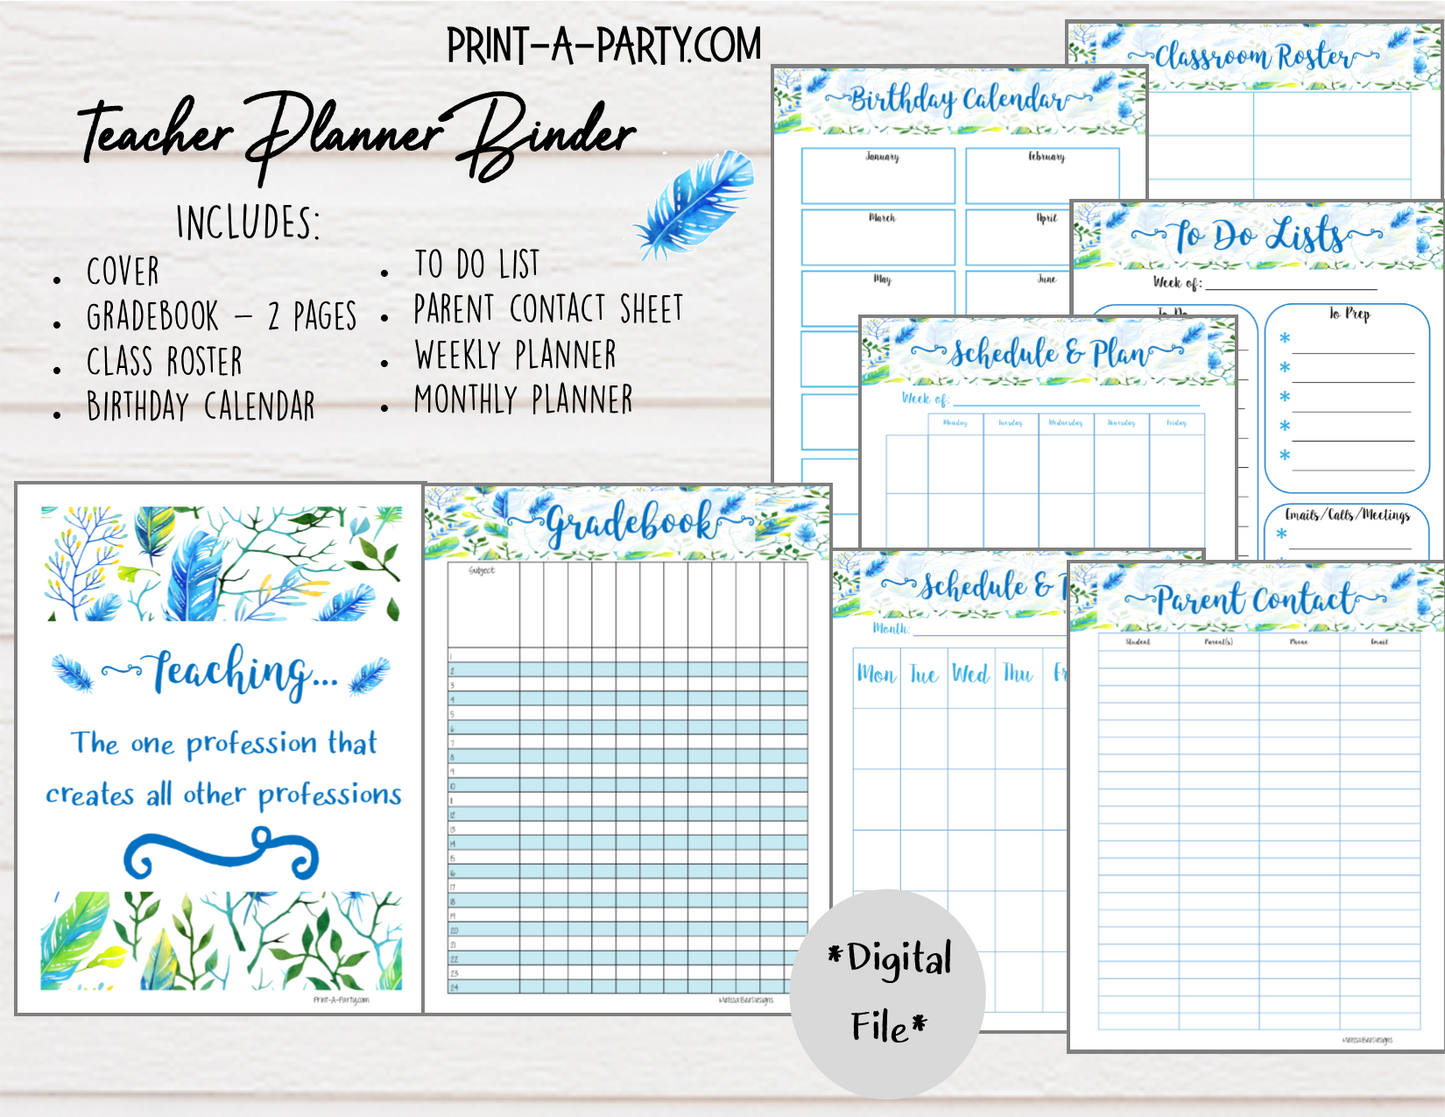 PRINT-A-PARTY.COM
Teacher Planner Binder
INCLUDES:
• COVER
• GRADEBOOK – 2 PAGES
• CLASS ROSTER
• BIRTHDAY CALENDAR
• TO DO LIST
• PARENT CONTACT SHEET
• WEEKLY PLANNER
• MONTHLY PLANNER
Teaching...
The one profession that
creates all other professions
Print-A-Party.com
Gradebook
Subject
1
2
3
4
5
6
7
8
9
10
11
12
13
14
15
16
17
18
19
20
21
22
23
24
MelissaBearDesigns
Birthday Calendar
January
February
March
April
May
June
Classroom Roster
To Do Lists
Week of:
To Do
To Prep
*
*
*
*
*
Emails/Calls/Meetings
*
Schedule & Plan
Week of:
Monday Tuesday Wednesday Thursday Friday
Schedule & P
Month:
Mon Tue Wed Thu Fr
Parent Contact
Student Parent(s) Phone Email
MelissaBearDesigns
*Digital
File*